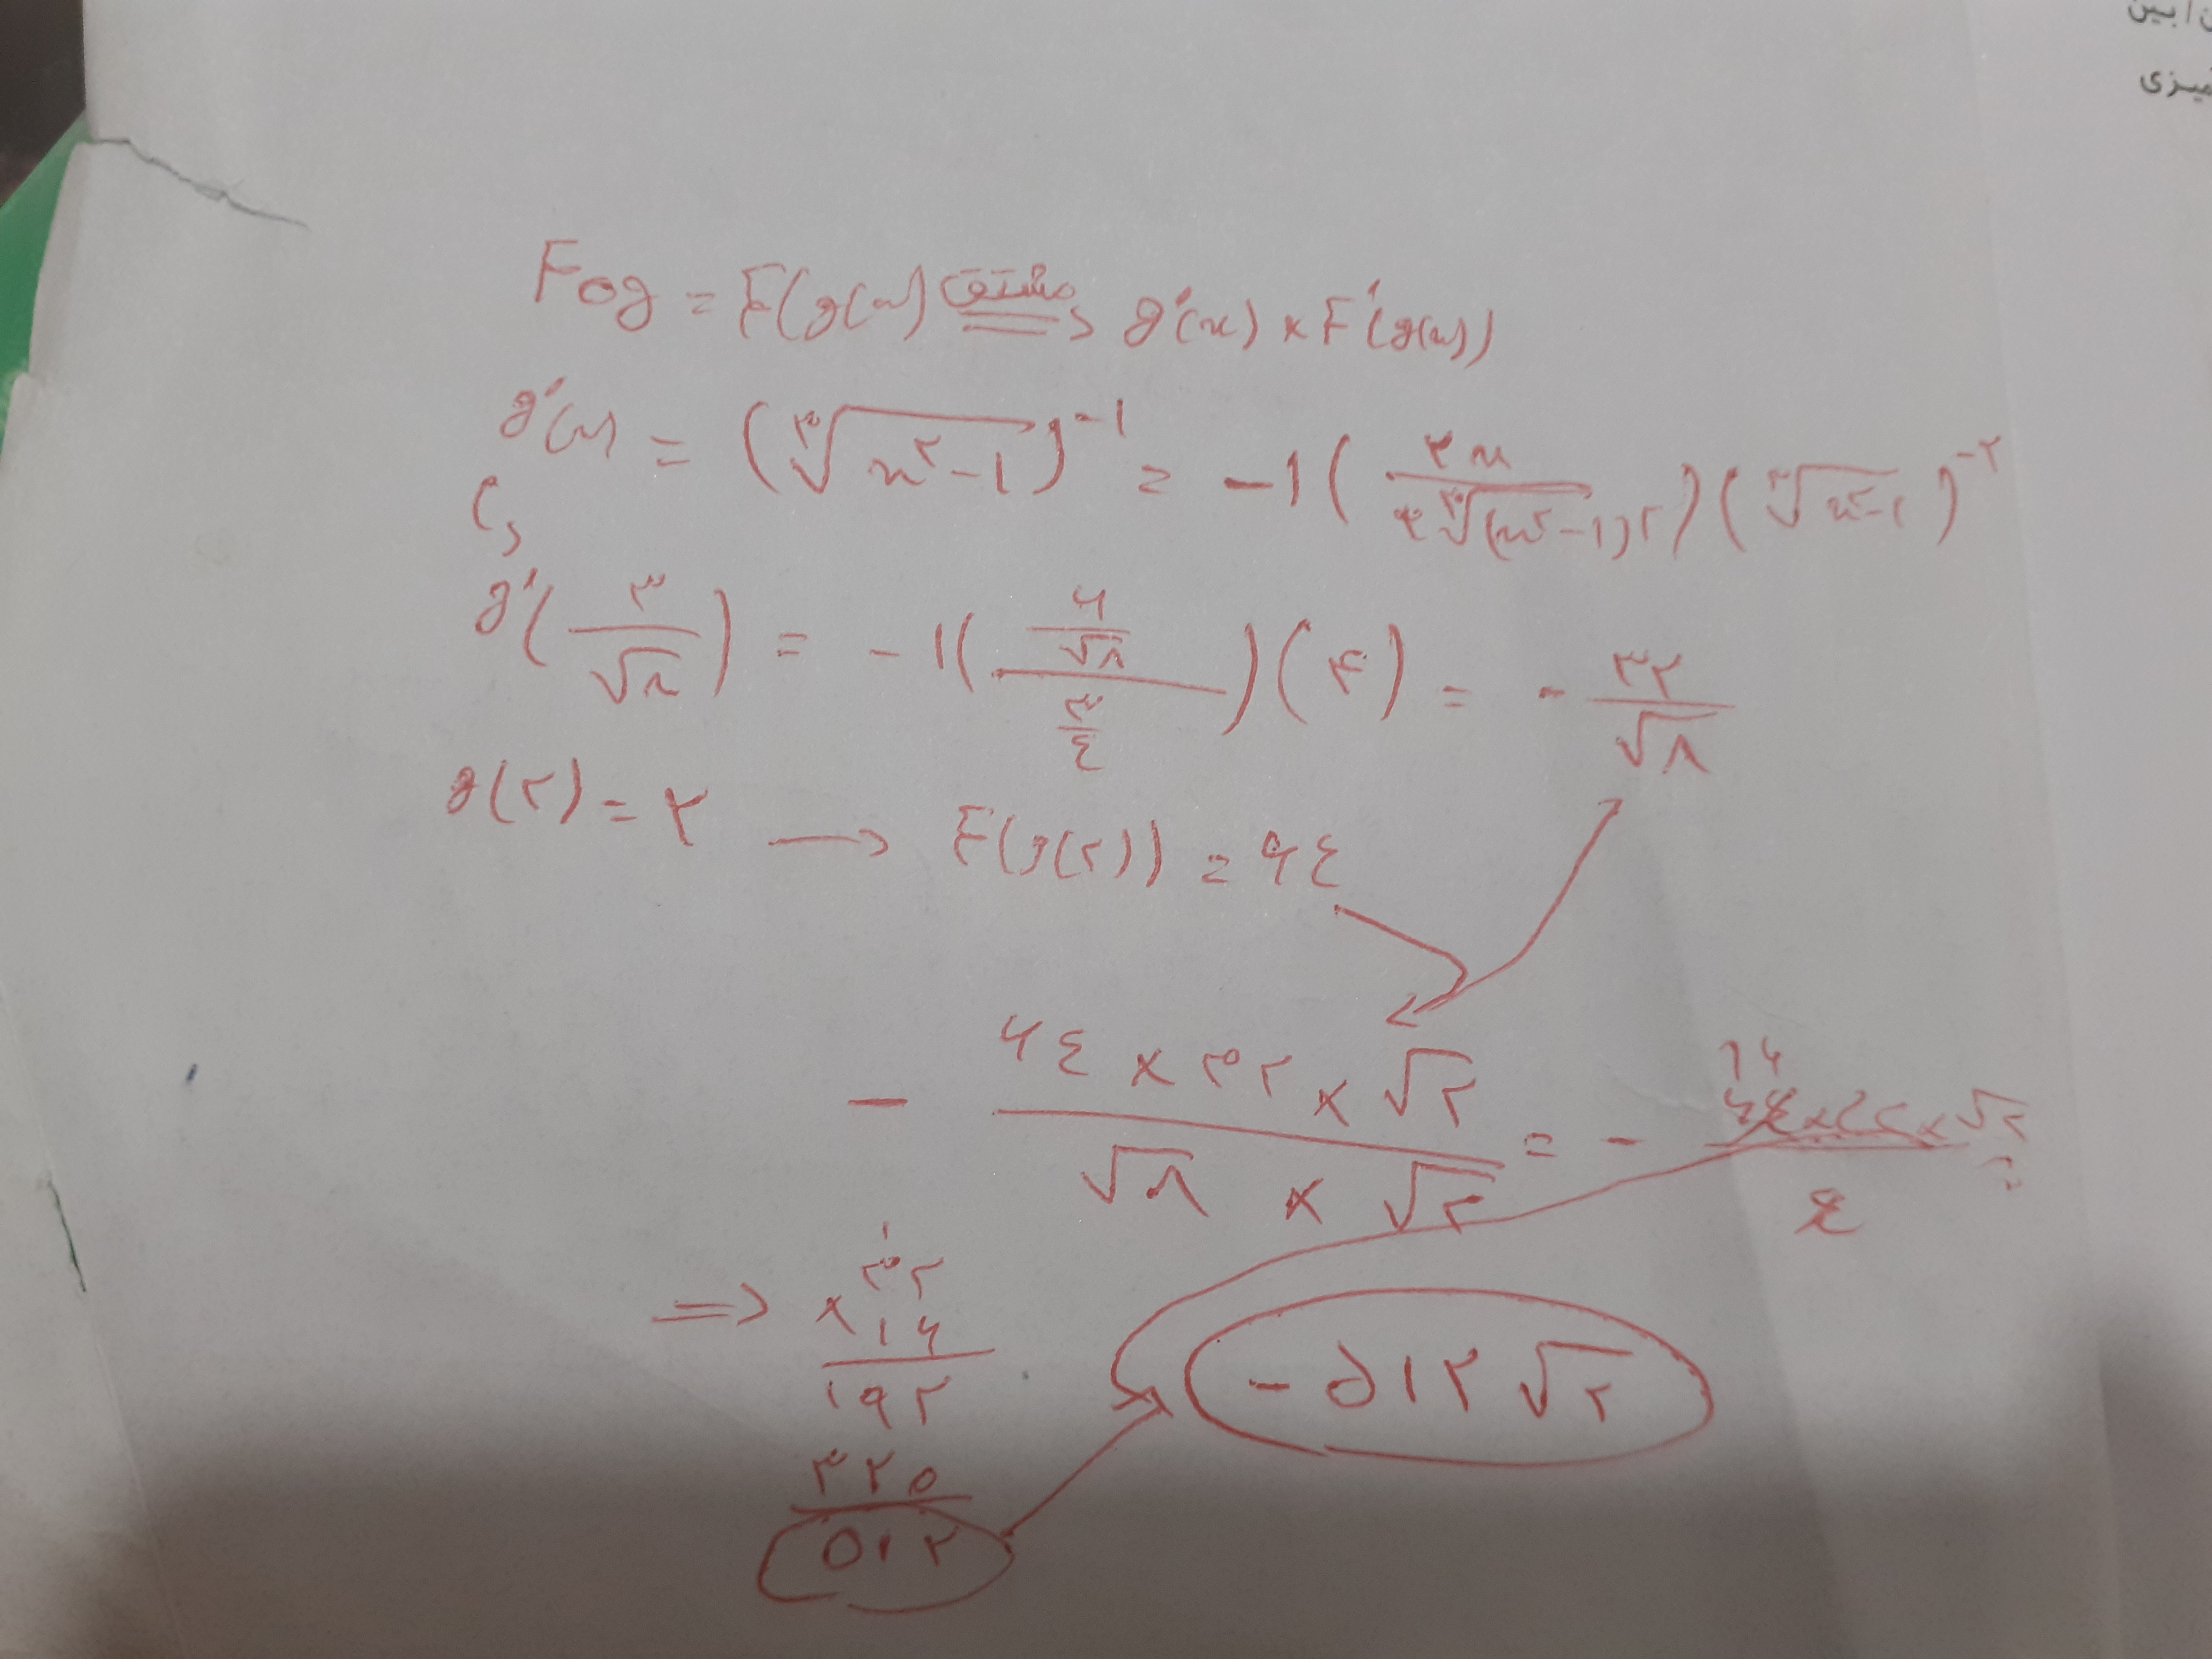 ن ابین
میزی
Fog = F(g(x)) مشتق => g'(x) × F'(g(x))
g'(x) = (∛(x²-1))^-1 = -1 (۲x / ۳∛(x²-1)²) (∛(x²-1))^-۲
g'(۳/√۸) = -1 ((۶/√۸) / (۳/٤)) (۴) = - ۳۲/√۸
g(۲) = ۲ → F(g(۲)) = ۶٤
- (۶٤ × ۳۲ × √۲) / (√۸ × √۲) = - (۶٤ × ۳۲ × √۲) / ٤ =
۱۶
=> ۳۲
× ۱۶
۱۹۲
۳۲۰
۵۱۲
- ۵۱۲ √۲